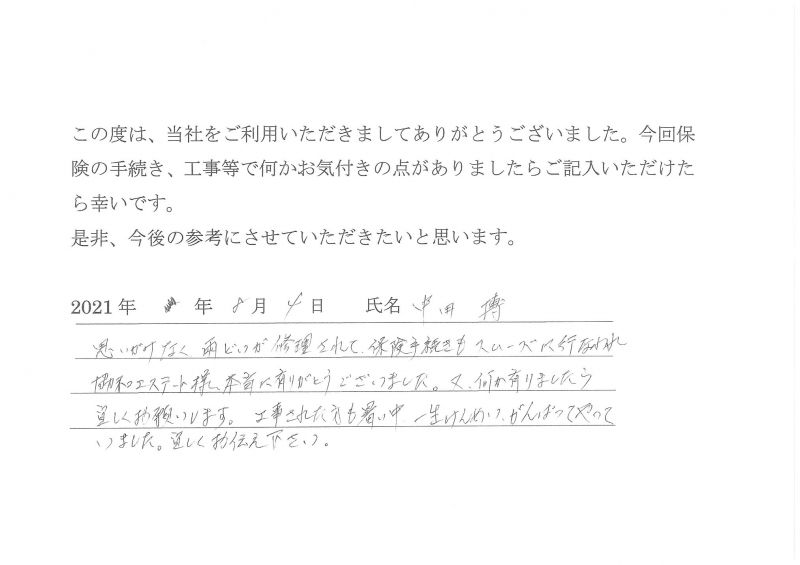 この度は、当社をご利用いただきましてありがとうございました。今回保
険の手続き、工事等で何かお気付きの点がありましたらご記入いただけた
ら幸いです。
是非、今後の参考にさせていただきたいと思います。
2021年 年 8月 4日 氏名 中田 博
思いがけなく 雨どいが 修理されて、保険手続きも スムーズに行なわれ
協和エステート様、本当に有りがとうございました。又、何か有りましたら
宜しくお願いします。 工事された方も暑い中 一生けんめい、がんばってやって
いました。宜しくお伝え下さい。